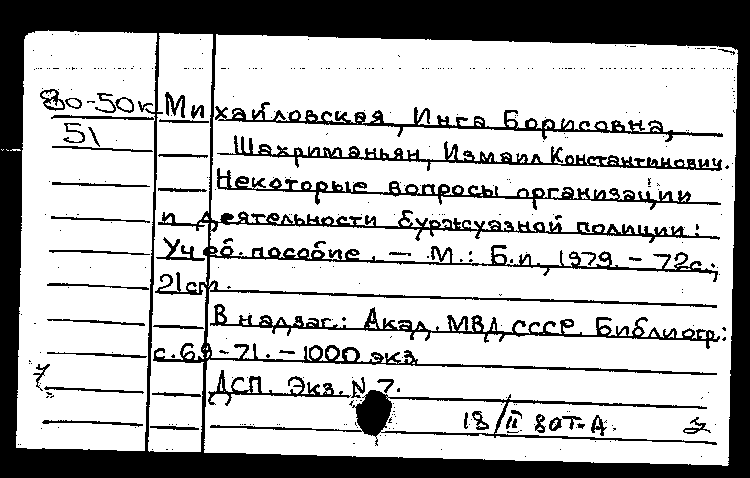 80-50к Михайловская, Инга Борисовна,
51 Шахриманьян, Измаил Константинович.
Некоторые вопросы организации
и деятельности буржуазной полиции:
Учеб. пособие. — М.: Б.и., 1979. – 72с.;
21см.
В надзаг.: Акад. МВД СССР. Библиогр.:
с. 69-71. – 1000 экз.
7 ДСП. Экз. N 7.
18/II 80т-А.